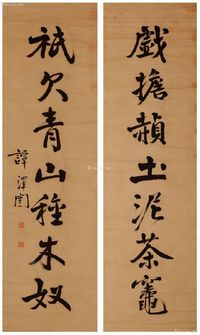 戲擔赬土泥茶竈
祇欠青山種木奴
譚澤闓